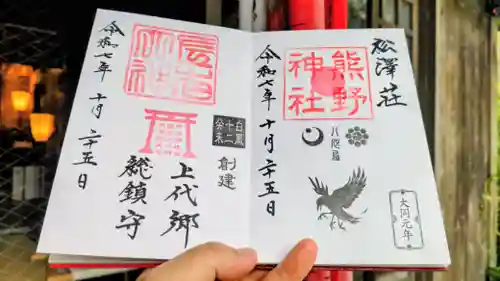 松澤荘
熊野
神社
八咫烏
令和七年十月二十五日
大同元年
令和七年十月二十五日
白鳳
十二
癸未
創建
上代郷
総鎮守